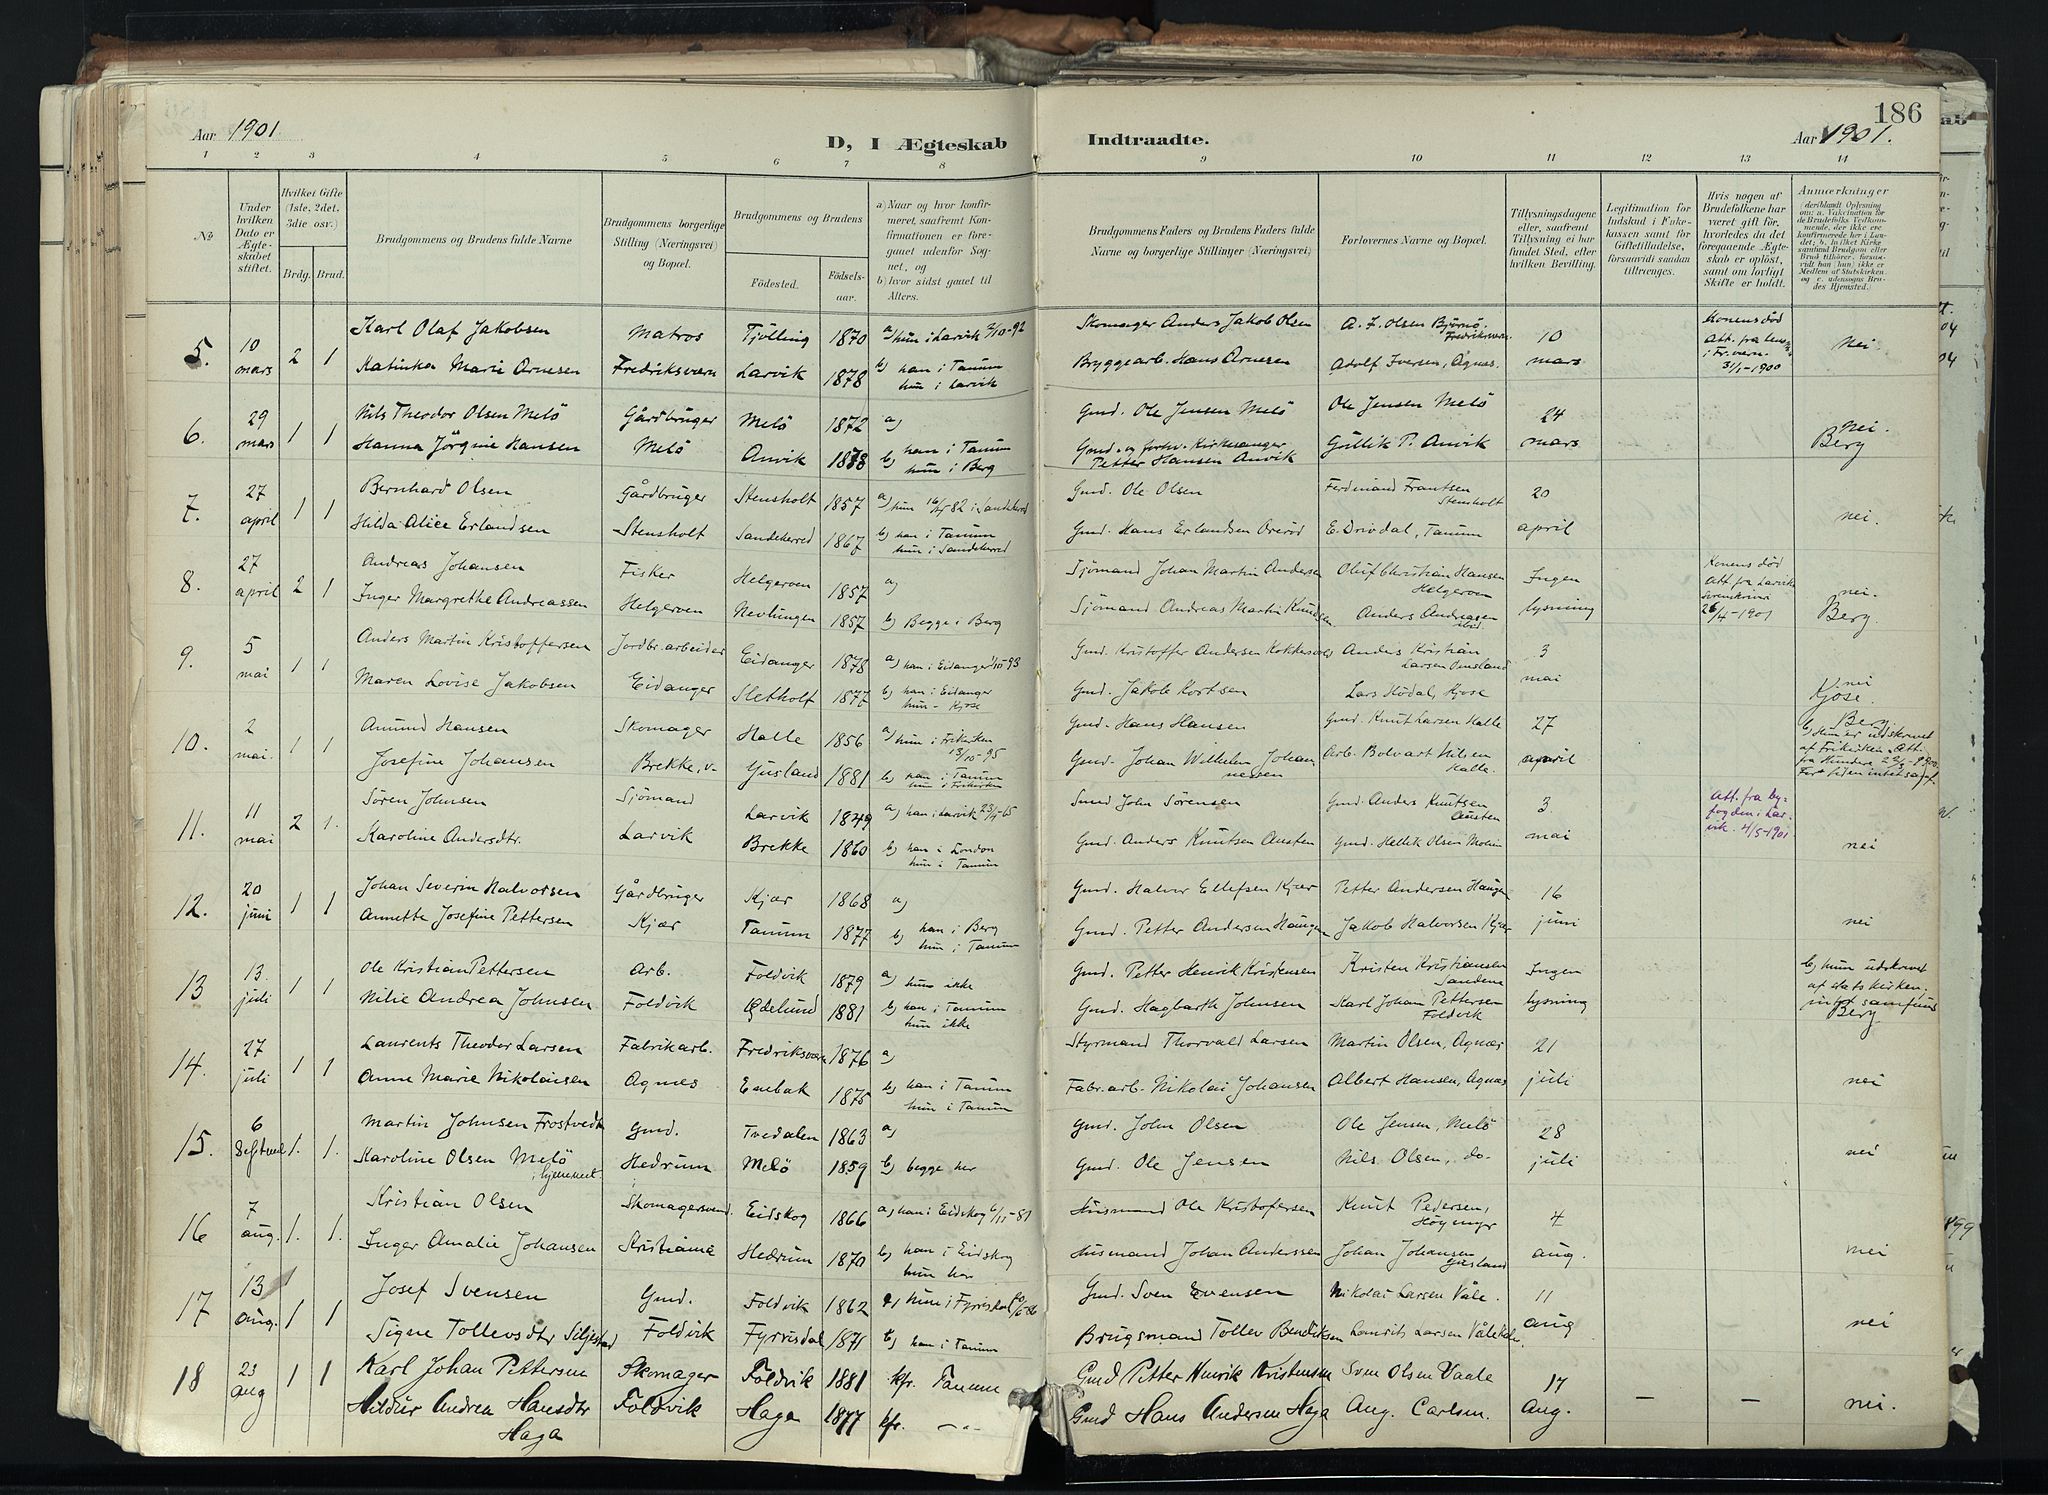 186
Aar 1901.
D, I Ægteskab
Indtraadte.
Aar 1901.
1 2 3 4 5 6 7 8 9 10 11 12 13 14
№
Under hvilken Dato er Ægteskabet stiftet.
Hvilket Gifte (1ste, 2det, 3die osv.)
Brdg. Brud.
Brudgommens og Brudens fulde Navne
Brudgommens borgerlige Stilling (Næringsvei) og Bopæl.
Brudgommens og Brudens
Fødested.
Fødselsaar.
a) Naar og hvor konfirmeret, saafremt Konfirmationen er foregaaet udenfor Sognet, og
b) hvor sidst gaaet til Alters.
Brudgommens Faders og Brudens Faders fulde Navne og borgerlige Stillinger (Næringsvei)
Forlovernes Navne og Bopæl.
Tillysningsdagene eller, saafremt Tillysning ei har fundet Sted, efter hvilken Bevilling.
Legitimation for Indskud i Enkekassen samt for Giftetilladelse, forsaavidt saadan tiltrænges.
Hvis nogen af Brudefolkene har været gift før, hvorledes da det foregaaende Ægteskab er opløst, samt om lovligt Skifte er holdt.
Anmærkninger
5. 10 mars 2 1
Karl Olaf Jakobsen Matros Tjölling 1870 a) hun i Larvik 2/10-92
Katinka Marie Arnesen Fredriksværn Larvik 1878 b) han i Tanum hun i Larvik
Skomager Anders Jakob Olsen A. J. Olsen Björnö, Fredriksværn 10
Byggearb. Hans Arnesen Adolf Iversen, Agnes. mars
Konens död Att. fra i Fr.værn 31/1-1900 nei
6. 29 mars 1 1
Nils Theodor Olsen Melö Gårdbruger Melö 1872 a)
Hanna Jörgine Hansen Melö Anvik 1878 b) han i Tanum hun i Berg
Gmd. Ole Jensen Melö Ole Jensen Melö 24
Gmd. og forhv. Kirkesanger Petter Hansen Anvik Gullik P. Anvik mars
nei. Berg
7. 27 april 1 1
Bernhard Olsen Gårdbruger Stensholt 1857 a) hun 82 i Sandeherred
Hilda Alice Erlandsen Stensholt Sandeherred 1867 b) han i Tanum hun i Sandeherred
Gmd. Ole Olsen Ferdinand Frantsen Stensholt 20
Gmd. Hans Erlandsen E. Drivdal, Tanum april
nei.
8. 27 april 2 1
Andreas Johansen Fisker Helgeroen 1857 a)
Inger Margrethe Andreassen Helgeroen Nevlungen 1857 b) Begge i Berg
Sjömand Johan Martin Andersen Oluf Christian Hansen Helgeroen Ingen
Sjömand Andreas Martin Knudsen Anders Andreasen lysning
Konens död Att fra Larvik 26/4-1901 nei. Berg.
9. 5 mai 1 1
Anders Martin Kristoffersen Jordbr.arbeider Eidanger 1878 a) han i Eidanger 93
Maren Lovise Jakobsen Eidanger Sletholt 1877 b) han i Eidanger hun - Kjose
Gmd. Kristoffer Andersen Anders Kristian Larsen Omsland 3
Gmd. Jakob Kortsen Lars Kjose mai
nei Kjose.
10. 2 mai. 1 1
Amund Hansen Skomager Halle 1856 a) hun i Frikirken 13/10-95
Josefine Johansen Brekke, v- Gusland 1881 b) han i Tanum hun i Frikirken
Gmd. Hans Hansen Gmd. Knut Larsen Halle 27
Gmd. Johan Wilhelm Johannessen Arb. Bolvart Nilsen Halle. april
Berg
b) Hun er udskrevet af Frikirken. Att. fra
11. 11 mai 2 1.
Sören Johnsen Sjömand Larvik 1849 a) han i Larvik 23/4-65
Karoline Andersdtr. Larvik Brekke 1860 b) han i London hun i Tanum
Gmd John Sörensen Gmd. Anders Knutsen Austen 3
Gmd. Anders Knutsen Austen Gmd. Hellik Olsen mai
Att. fra byfogden i Larvik. 4/5-1901 nei
12. 20 juni 1 1
Johan Severin Halvorsen Gårdbruger Kjær 1868 a)
Annette Josefine Pettersen Kjær Tanum 1877 b) han i Berg hun i Tanum
Gmd. Halvor Ellefsen Kjær Petter Andersen Haugen 16
Gmd. Petter Andersen Haugen Jakob Halvorsen Kjær juni
nei
13 13. juli 1 1
Ole Kristian Pettersen Arb. Foldvik 1879 a) hun ikke
Nilie Andrea Johnsen Foldvik Ødelund 1881 b) han i Tanum hun ikke
Gmd. Petter Henrik Kristensen Kristen Kristiansen Sandene Ingen
Gmd. Hagbarth Johnsen Karl Johan Pettersen Foldvik lysning
b) hun udskrevet af statskirken. intet samfund Berg
14. 27 juli 1 1
Laurents Theodor Larsen Fabrikarb. Fredriksværn 1876 a)
Anne Marie Nikolaisen Agnes Enebak 1875 b) han i Tanum hun i Tanum
Styrmand Thorvald Larsen Martin Olsen, Agnes 21
Fabr.arb. Nikolai Johansen Albert Hansen, Agnes juli
nei
15. 6 1. 1.
Martin Johnsen Frostvedt Gmd. Tvedalen 1863 a)
Karoline Olsen Melö, hjemmet. Hedrum Melö 1859 b) begge her
Gmd. John Olsen Ole Jensen, Melö 28
Gmd. Ole Jensen Nils Olsen, do- juli
nei
16 7 aug. 1. 1.
Kristian Olsen Skomagersvend Eidskog 1866 a) han i Eidskog 6/11-81
Inger Amalie Johansen Kristiania Hedrum 1870 b) han i Eidskog hun her
Husmand Ole Kristofersen Knut Pedersen, Höymyr 4
Husmand Johan Anderssen Johan Johansen Gusland aug.
nei
17 13 aug. 1 1
Josef Svensen Gmd. Foldvik 1862 a) hun i Fyrisdal
Signe Tollevsdtr Siljestad Foldvik Fyrrisdal 1871 b) han i Tanum
Gmd. Sven Evensen Nikolai Larsen Våle. 11
Brugsmand Tollev Bendiksen Laurits Larsen aug
nei
18 23 aug 1 1
Karl Johan Pettersen Skomager Foldvik 1881 kfr. Tanum
Hildur Andrea Hansdtr Haga Foldvik Haga 1877 kfr. -"-
Gmd Petter Henrik Kristensen Sven Olsen Vaale 17
Gmd Hans Andersen Haga Aug. Carlsen. Aug.
— — nei.